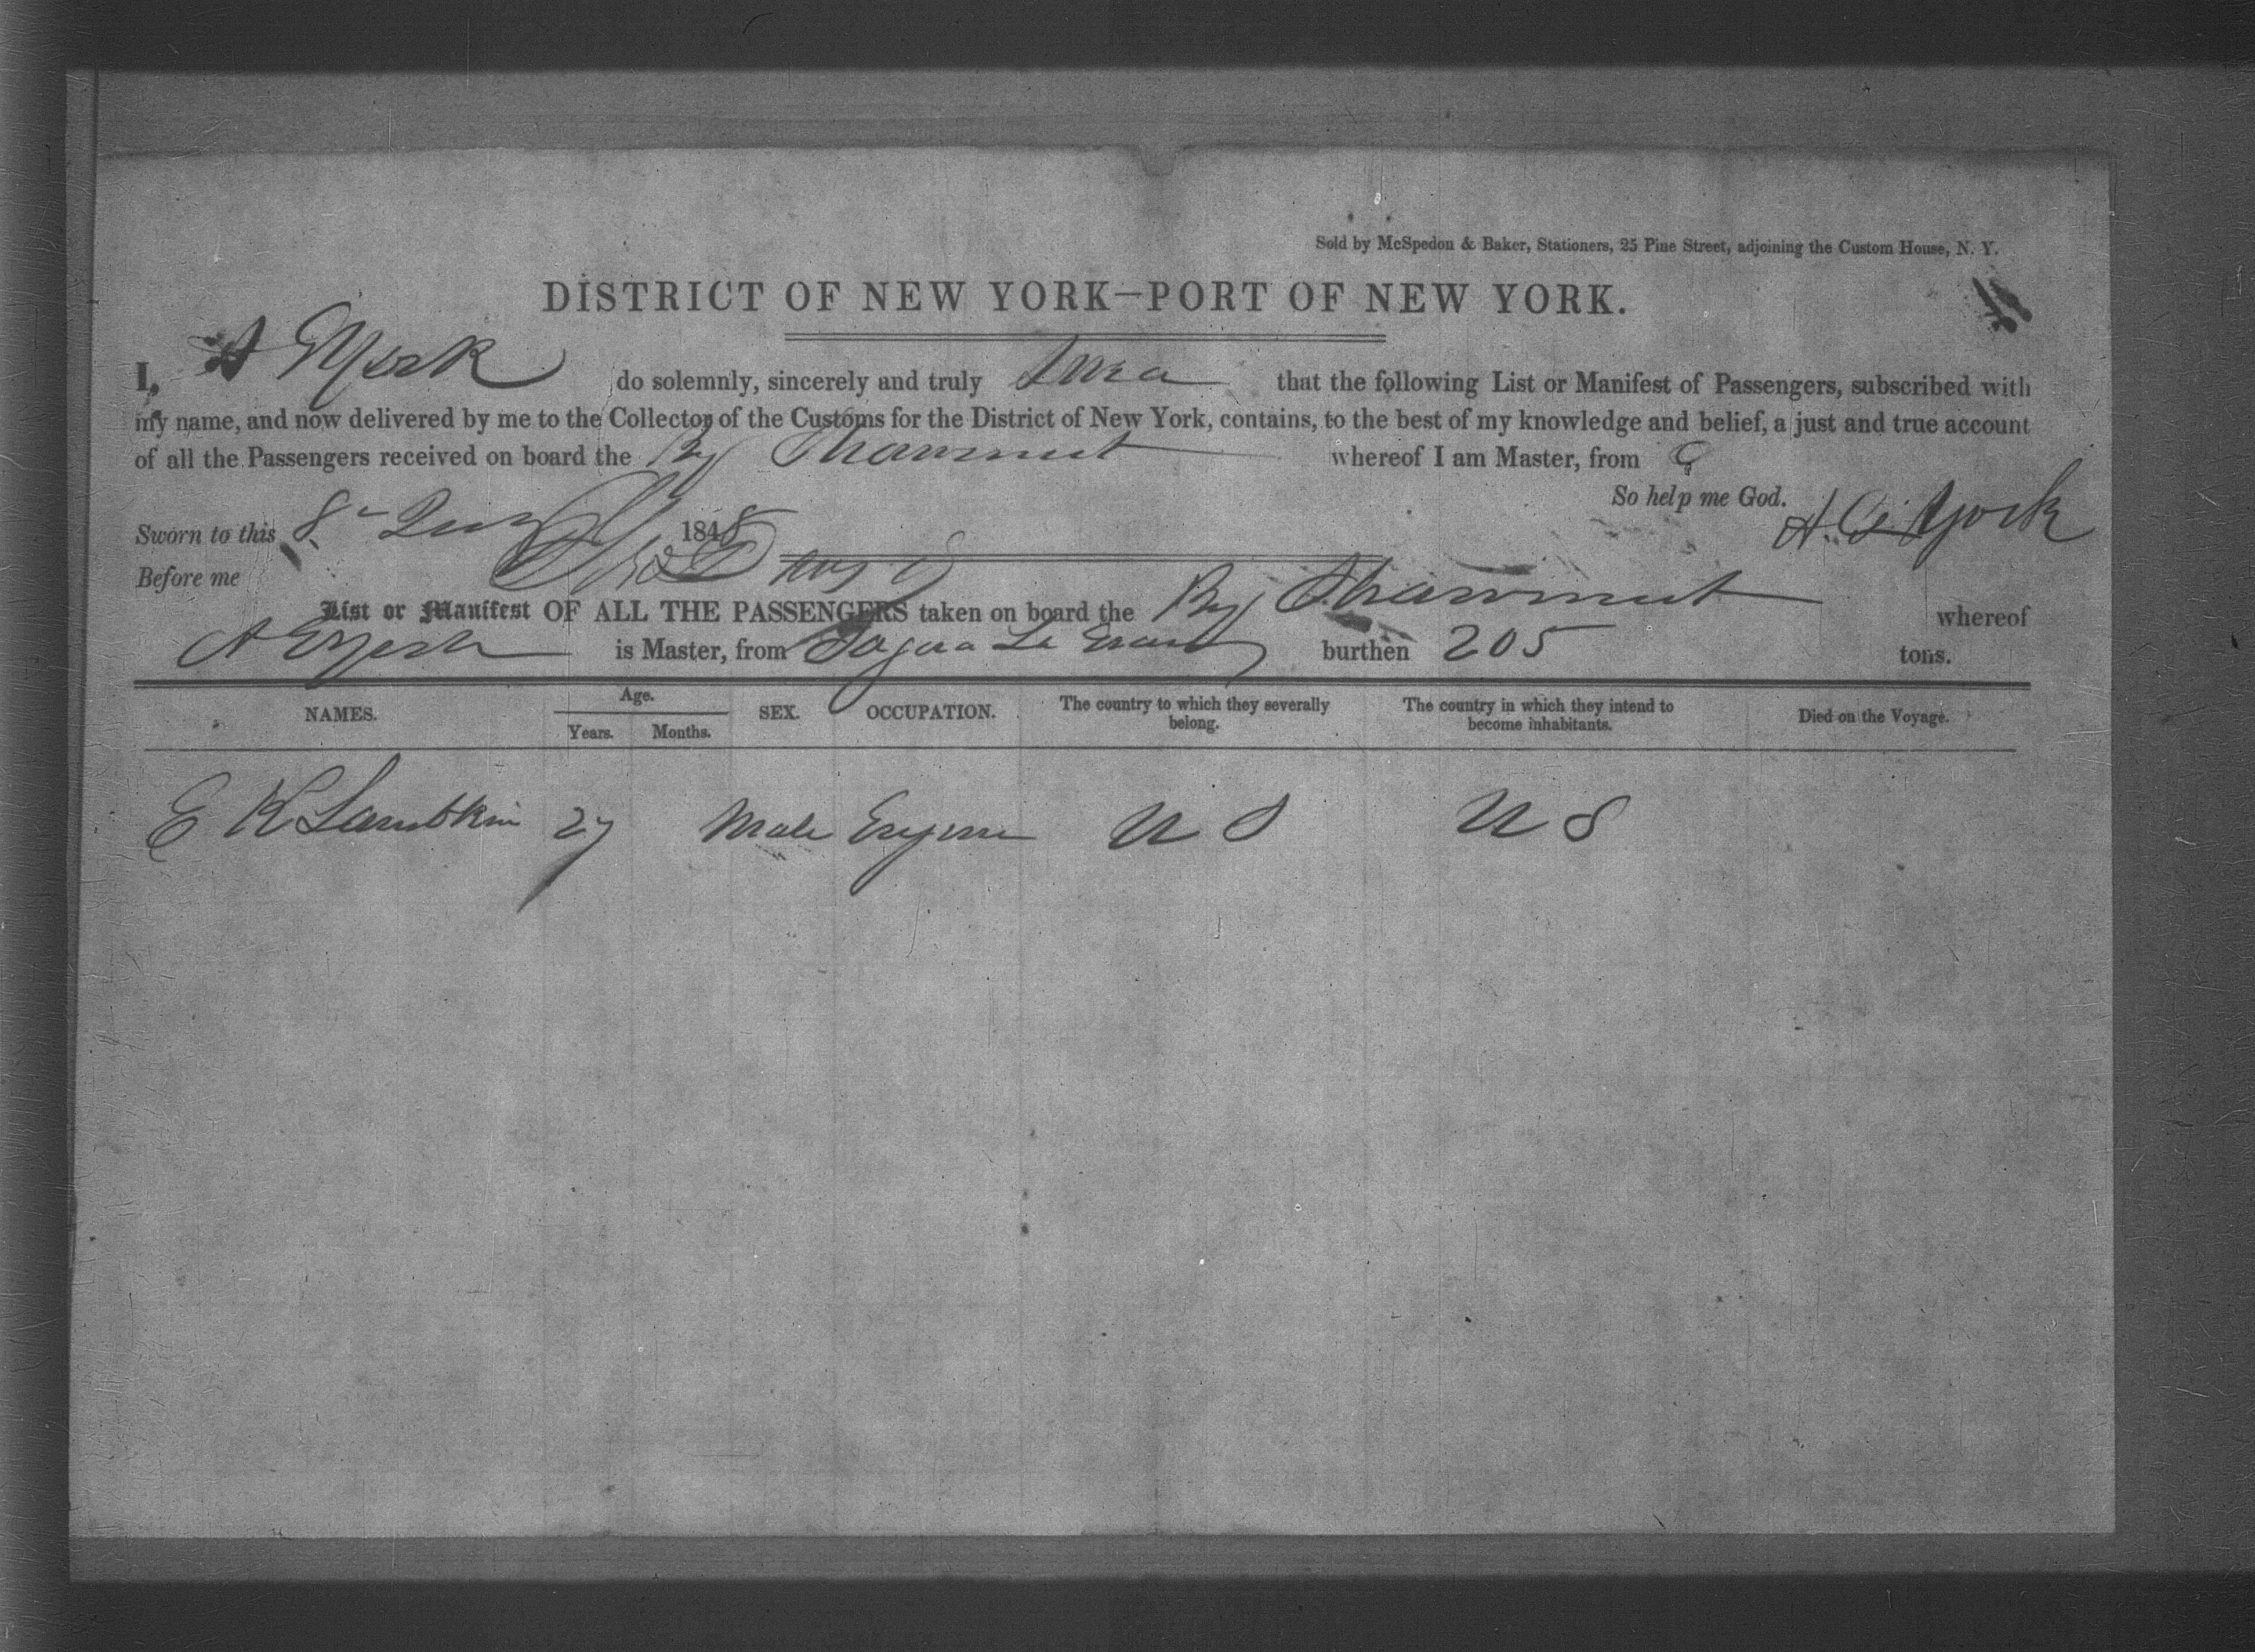 Sold by McSpedon & Baker, Stationers, 25 Pine Street, adjoining the Custom House, N. Y.
DISTRICT OF NEW YORK—PORT OF NEW YORK.
I, A E York do solemnly, sincerely and truly that the following List or Manifest of Passengers, subscribed with
my name, and now delivered by me to the Collector of the Customs for the District of New York, contains, to the best of my knowledge and belief, a just and true account
of all the Passengers received on board the Brig Shawmut whereof I am Master, from
So help me God.
Sworn to this 8 1848 York
Before me
List or Manifest OF ALL THE PASSENGERS taken on board the Brig Shawmut whereof
A E York is Master, from Sagua La burthen 205 tons.
NAMES. Age. Years. Months. SEX. OCCUPATION. The country to which they severally belong. The country in which they intend to become inhabitants. Died on the Voyage.
E K Lambkin 27 Male U S U S